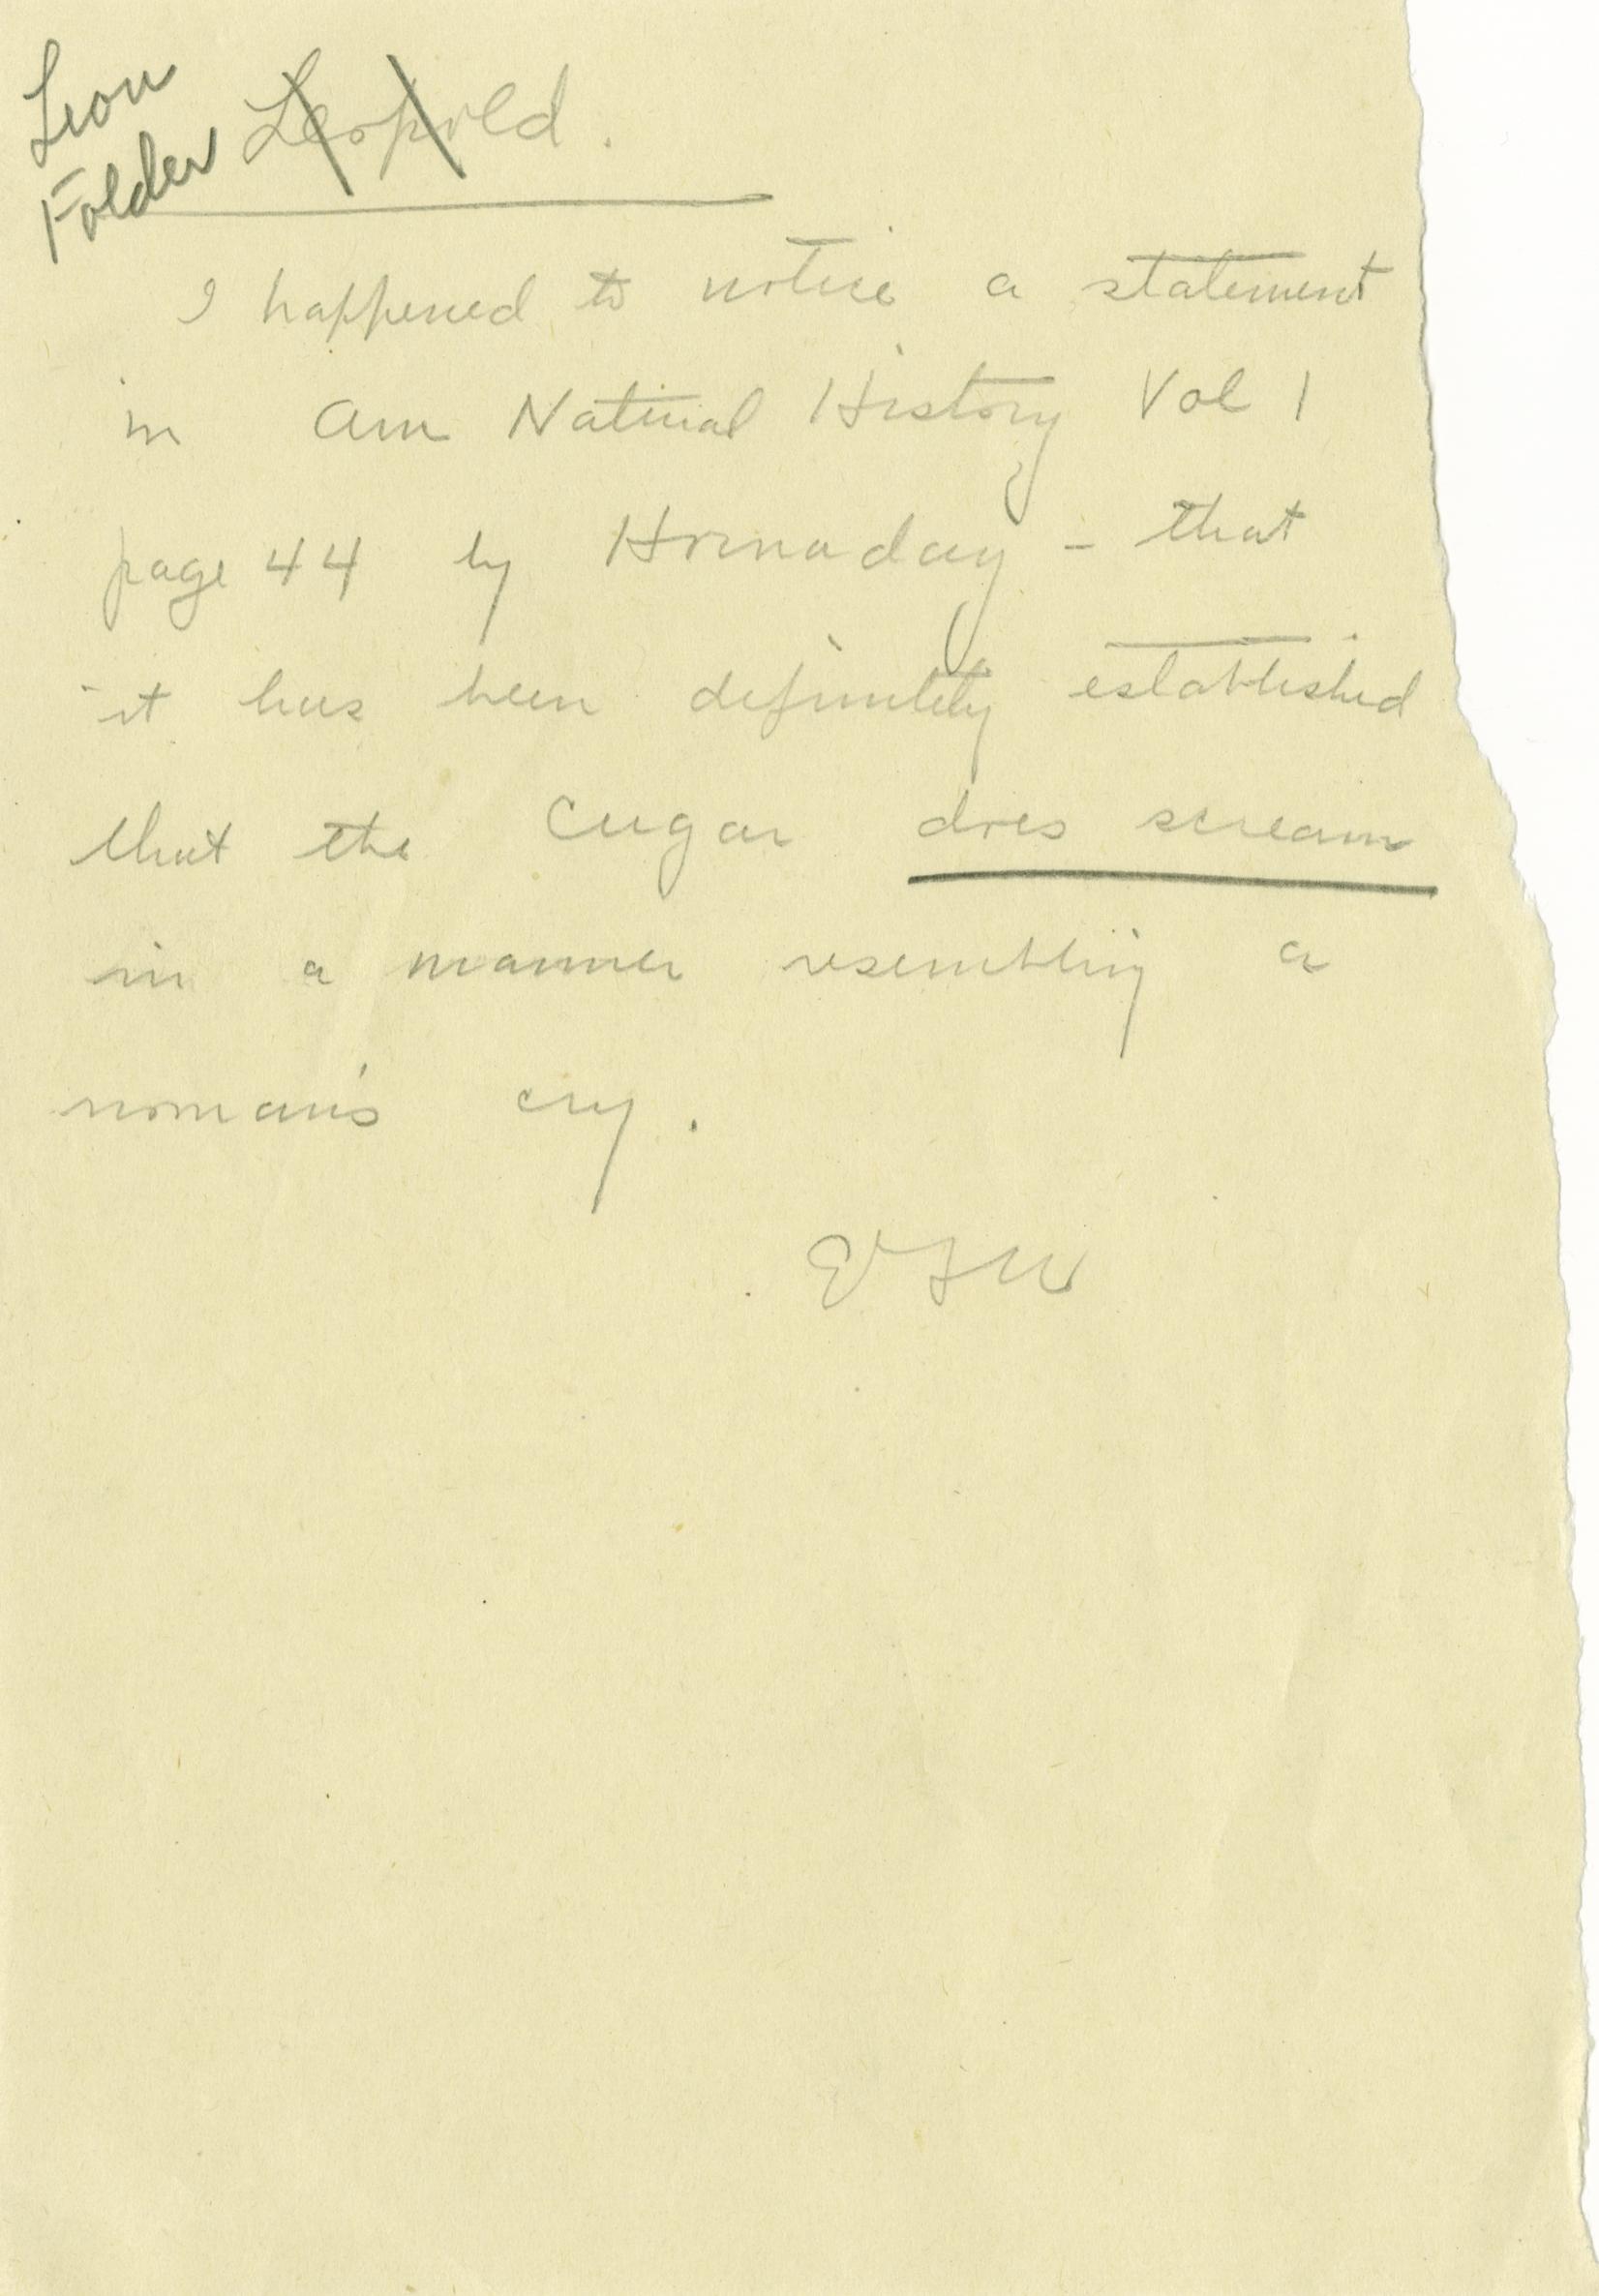 Lion
Folder Leopold.
I happened to notice a statement
in Am Natural History Vol 1
page 44 by Hornaday - that
it has been definitely established
that the Cugar does scream
in a manner resembling a
woman's cry.